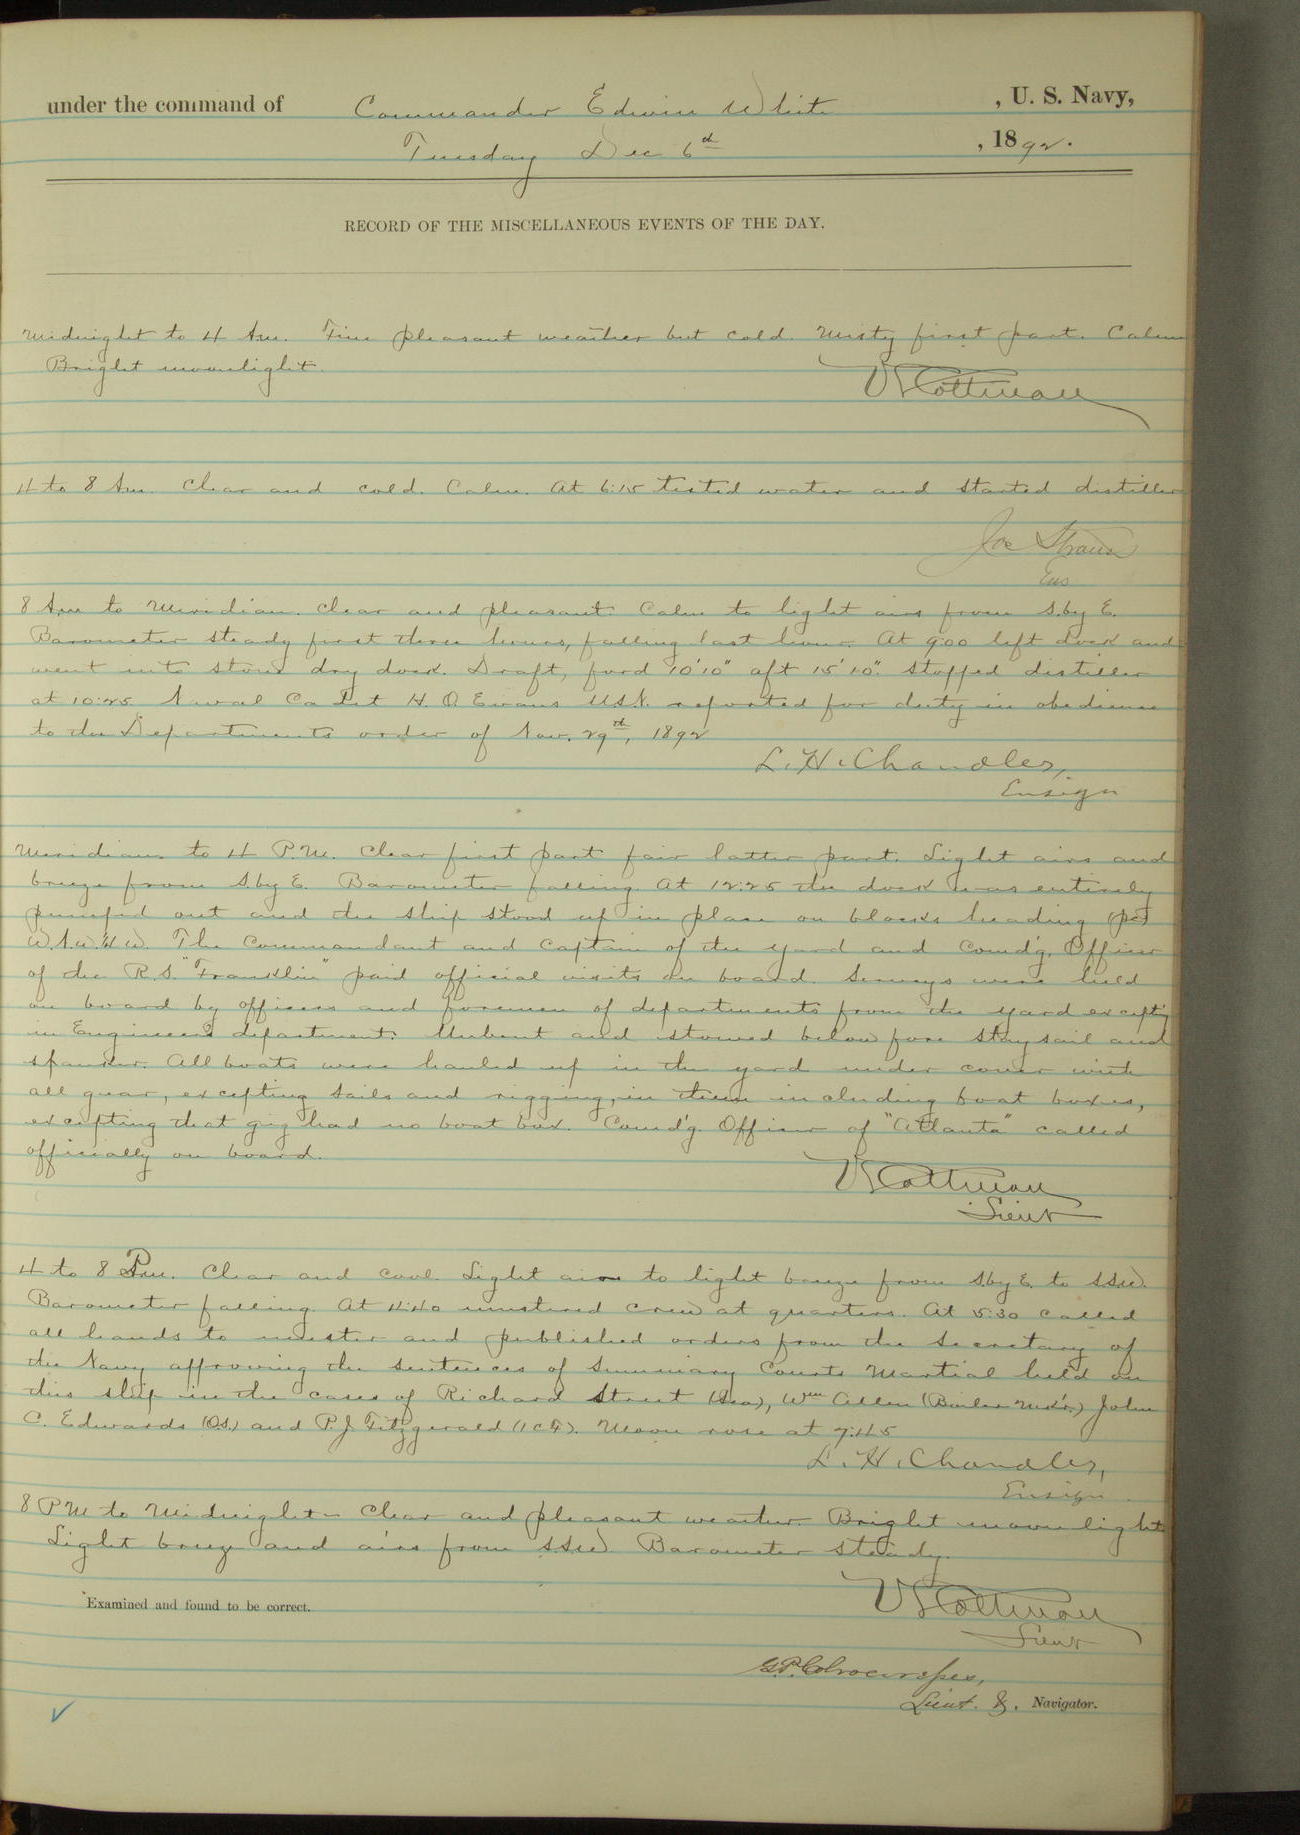 under the command of Commander Edwin White, U. S. Navy,
Tuesday Dec 6th, 1892.
RECORD OF THE MISCELLANEOUS EVENTS OF THE DAY.
Midnight to 4 Am. Fine pleasant weather but cold. Misty first part. Calm
Bright moonlight.
V S Cottman
4 to 8 Am. Clear and cold. Calm. At 6:15 tested water and started distiller
Joe Strauss
Ens
8 Am to Meridian. Clear and pleasant. Calm to light airs from S.by E.
Barometer steady first three hours, falling last hour. At 9:00 left dock and
went into stone dry dock. Draft, ford 10'10" aft 15'10". Stopped distiller
at 10:25. Naval Cadet H. O. Evans U.S.N. reported for duty in obedience
to the Departments order of Nov. 29th, 1892
L. H. Chandler,
Ensign
Meridian to 4 P.M. Clear first part fair latter part. Light airs and
breeze from S.by E. Barometer falling. At 12:25 the dock was entirely
pumped out and the ship stood up in place on blocks heading (pc)
The Commandant and Captain of the yard and Comd'g. Officer
of the R.S. "Franklin" paid official visits on board. Surveys were held
on board by officers and foremen of departments from the yard except'g
in Engineer's department. Unbent and stowed below fore staysail and
spanker. All boats were hauled up in the yard under cover with
all gear, excepting sails and rigging, in them including boat boxes,
excepting that gig had no boat box. Comd'g. Officer of "Atlanta" called
officially on board.
V S Cottman
Lieut
4 to 8 Pm. Clear and cool. Light airs to light breeze from S.by E. to SSW.
Barometer falling. At 4:40 mustered crew at quarters. At 5:30 called
all hands to muster and published orders from the Secretary of
the Navy approving the sentences of Summary Courts Martial held on
this ship in the cases of Richard Street (Sea), Wm Allen (Boiler Mk'r.) John
C. Edwards (O.S.) and P. J. Fitzgerald (1cF). Moon rose at 7:45
L. H. Chandler,
Ensign.
8 PM to Midnight - Clear and pleasant weather. Bright moonlight
Light breeze and airs from SSW. Barometer steady.
V S Cottman
Lieut
Examined and found to be correct.
G.P. Colvocoresses,
Lieut. &. Navigator.